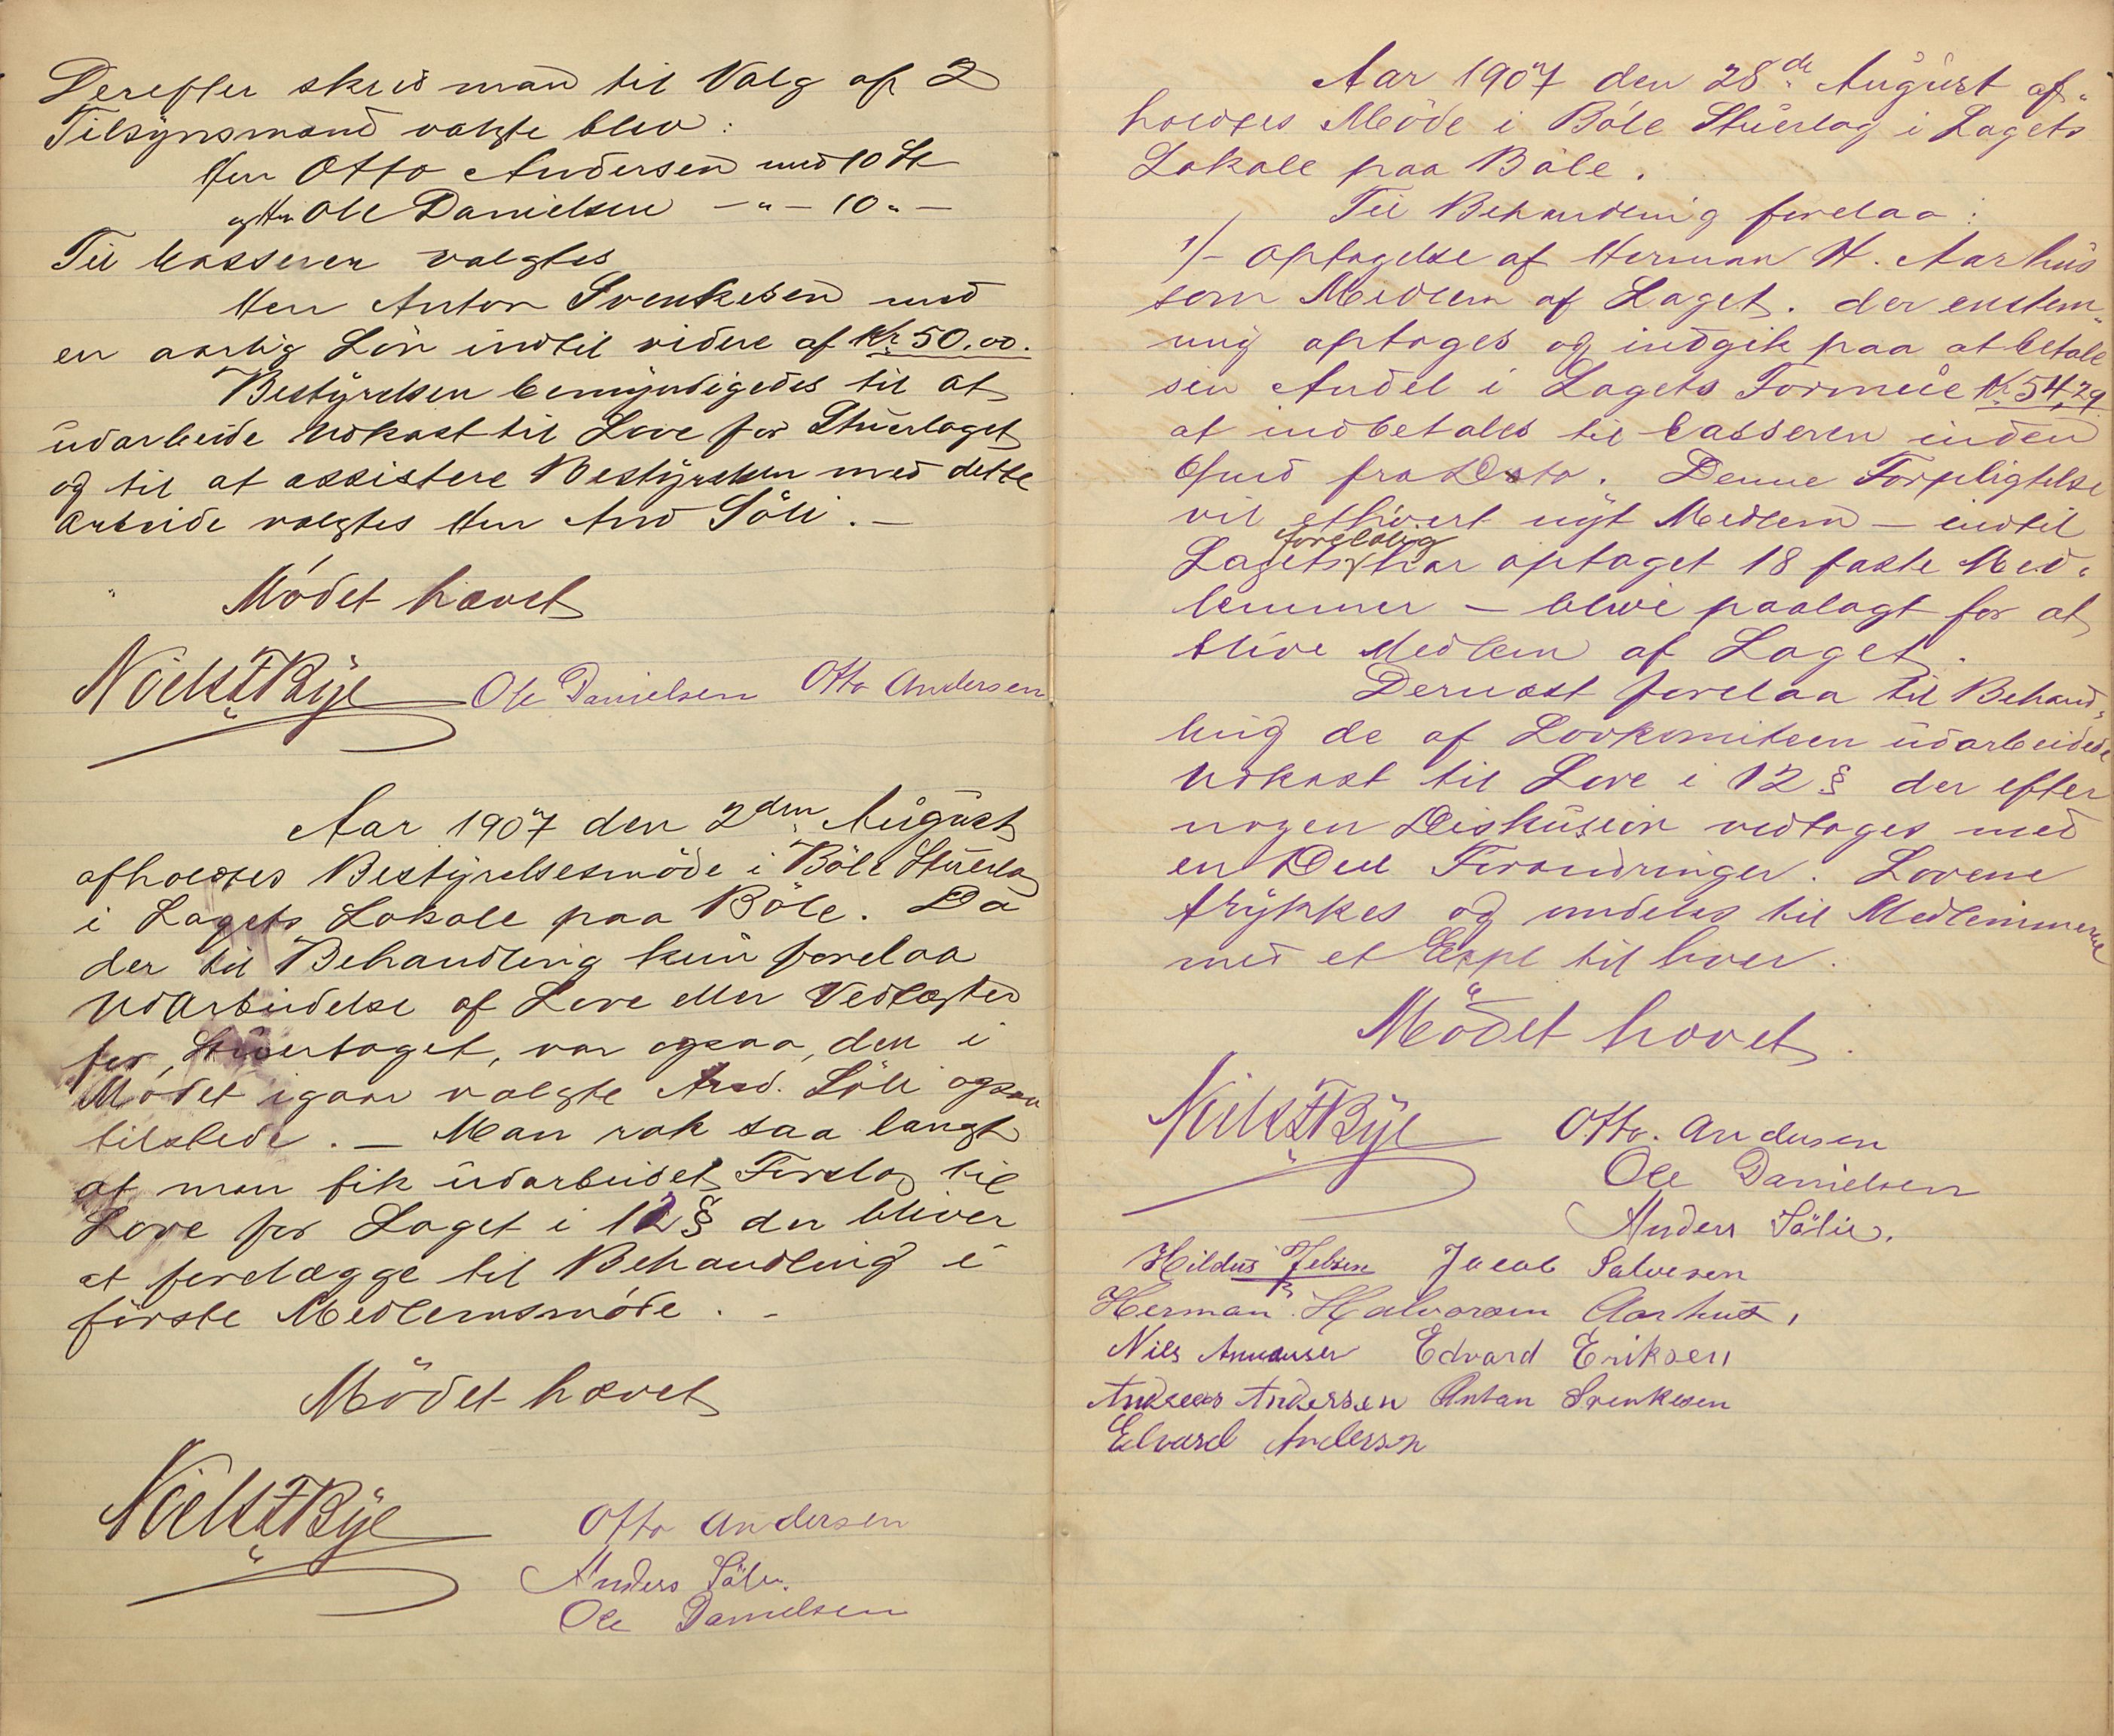 Derefter skred man til Valg af 2
Tilsynsmænd valgte blev:
Herr Otto Andersen med 10 St
og Hr Ole Danielsen – " – 10 " –
Til kasserer valgtes
Herr Anton Svenkesen med
en aarlig Lön indtil videre af Kr 50.00.
Bestyrelsen bemyndigedes til at
udarbeide Udkast til Love for Stuerlaget
og til at assistere Bestyrelsen med dette
Arbeide valgtes Herr And Söli. –
Mödet hævet
Niels F Bye Ole Danielsen Otto Andersen
Aar 1907 den 2den August
afholdtes Bestyrelsesmöde i Böle Stuerlag
i Lagets Lokale paa Böle. Da
der til Behandling kun forelaa
Udarbeidelse af Love eller Vedtægter
for Stuerlaget, var ogsaa, den i
Mödet igaar valgte And. Söli ogsaa
tilstede. – Man rak saa langt
at man fik udarbeidet Forslag til
Love for Laget i 12 § der bliver
at forelægge til Behandling i
förste Medlemsmöde. –
Mödet hævet
Niels F Bye Otto Andersen
Anders Söli.
Ole Danielsen
Aar 1907 den 28de August af-
holdtes Möde i Böle Stuerlag i Lagets
Lokale paa Böle.
Til Behandling forelaa:
1/– Optagelse af Herman H. Aarhus
som Medlem af Laget. der enstem-
mig optoges og indgik paa at betale
sin Andel i Lagets Formue Kr 54,29
at indbetales til Casseren inden
fra Dato. Denne Forpligtelse
vil ethvert nyt Medlem – indtil
Lagets foreløbig har optaget 18 faste Med-
lemmer – blive paalagt for at
blive Medlem af Laget.
Dernæst forelaa til Behand-
ling de af Lovkomiteen udarbeidede
Udkast til Love i 12 § der efter
nogen Diskusion vedtoges med
en Deel Forandringer. Lovene
trykkes og omdeles til Medlemmerne
med et Expl til hver.
Mödet hævet.
Niels F Bye Otto. Andersen
Ole Danielsen
Anders Sölie.
Hildus Jelsen Jacob Salvesen
Herman Halvorsen Aarhus,
Nils Edvard Eriksen
Andreas Andersen Anton Svenkesen
Edvard Anderson